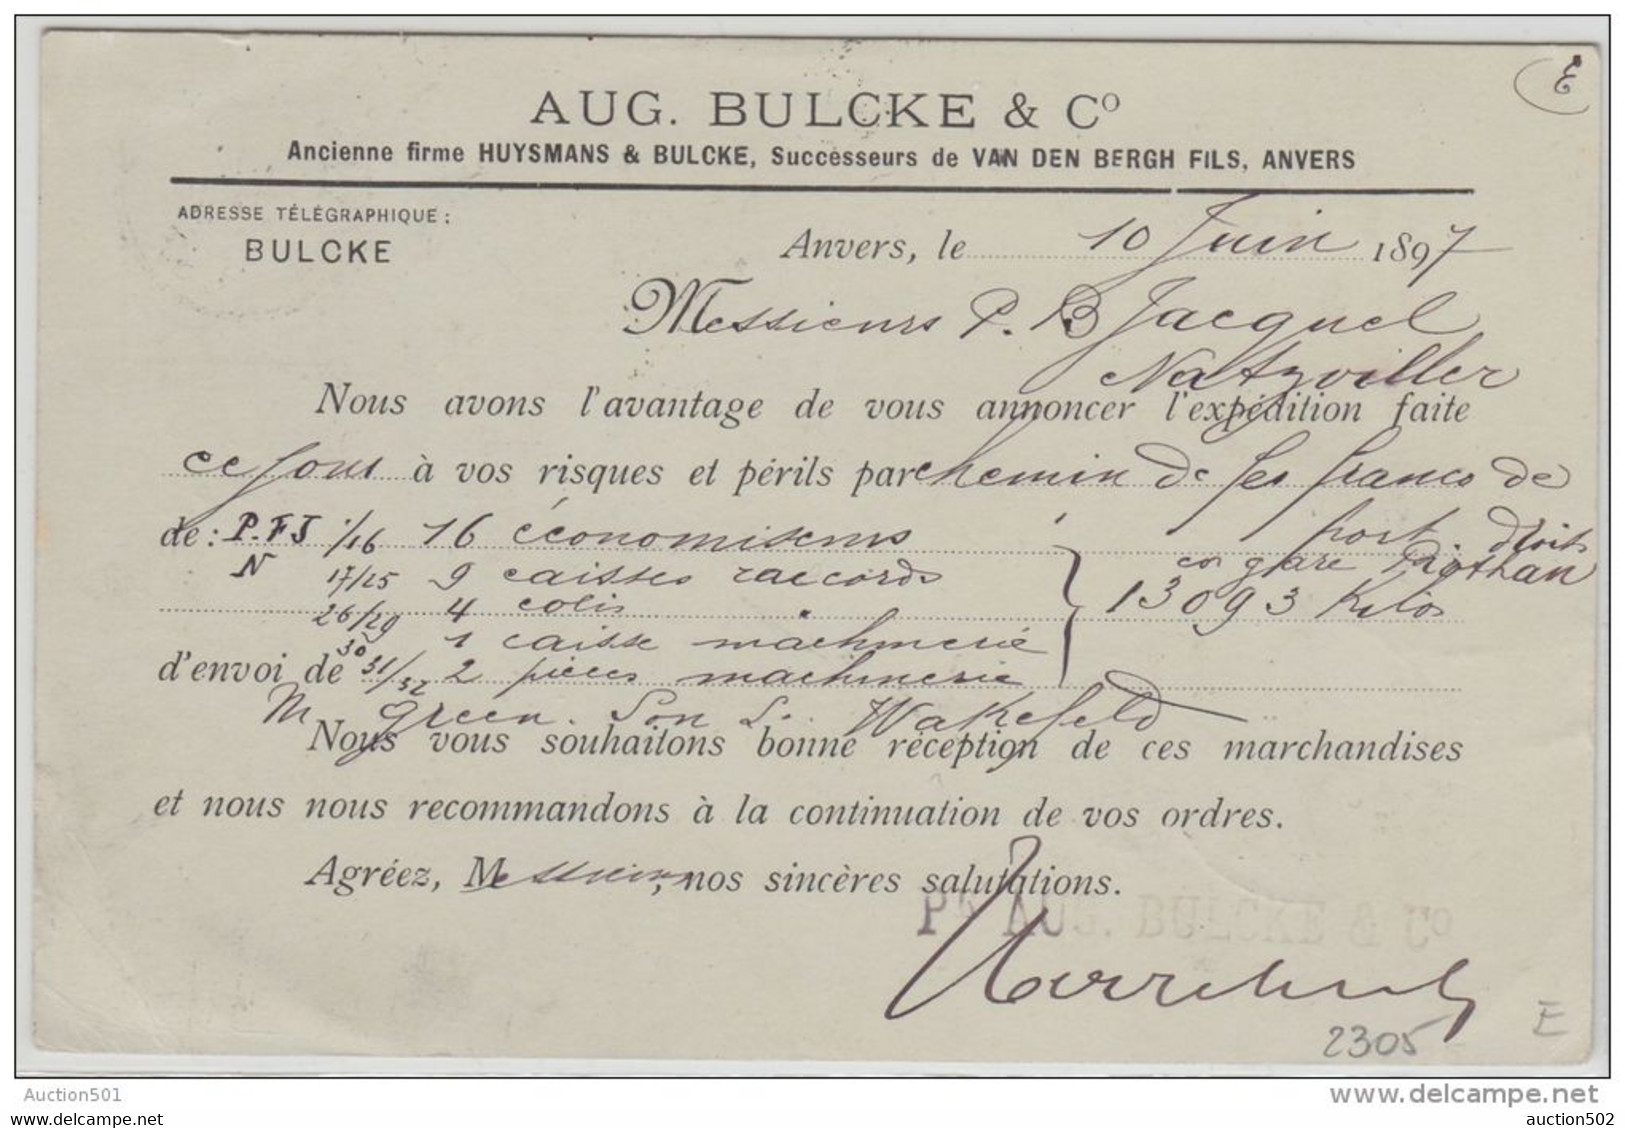 E
AUG. BULCKE & Cº
Ancienne firme HUYSMANS & BULCKE, Successeurs de VAN DEN BERGH FILS, ANVERS
ADRESSE TÉLÉGRAPHIQUE:
BULCKE
Anvers, le 10 Juin 1897
Messieurs P. B Jacquel
Natzviller
Nous avons l'avantage de vous annoncer l'expédition faite
ce jour à vos risques et périls par chemin de fer franco de
port. droits
de: P.FJ 1/16 16 économiseurs
en gare Rothan
N 17/25 9 caisses raccords
13093 Kilos
26/29 4 colis "
30 1 caisse machinerie
d'envoi de 31/32 2 pièces machinerie
M Green. Son Wakefield
Nous vous souhaitons bonne réception de ces marchandises
et nous nous recommandons à la continuation de vos ordres.
Agréez, Messieurs, nos sincères salutations.
Pr AUG. BULCKE & Cº
2305
E
Auction501
www.delcampe.net
auction502
auction502